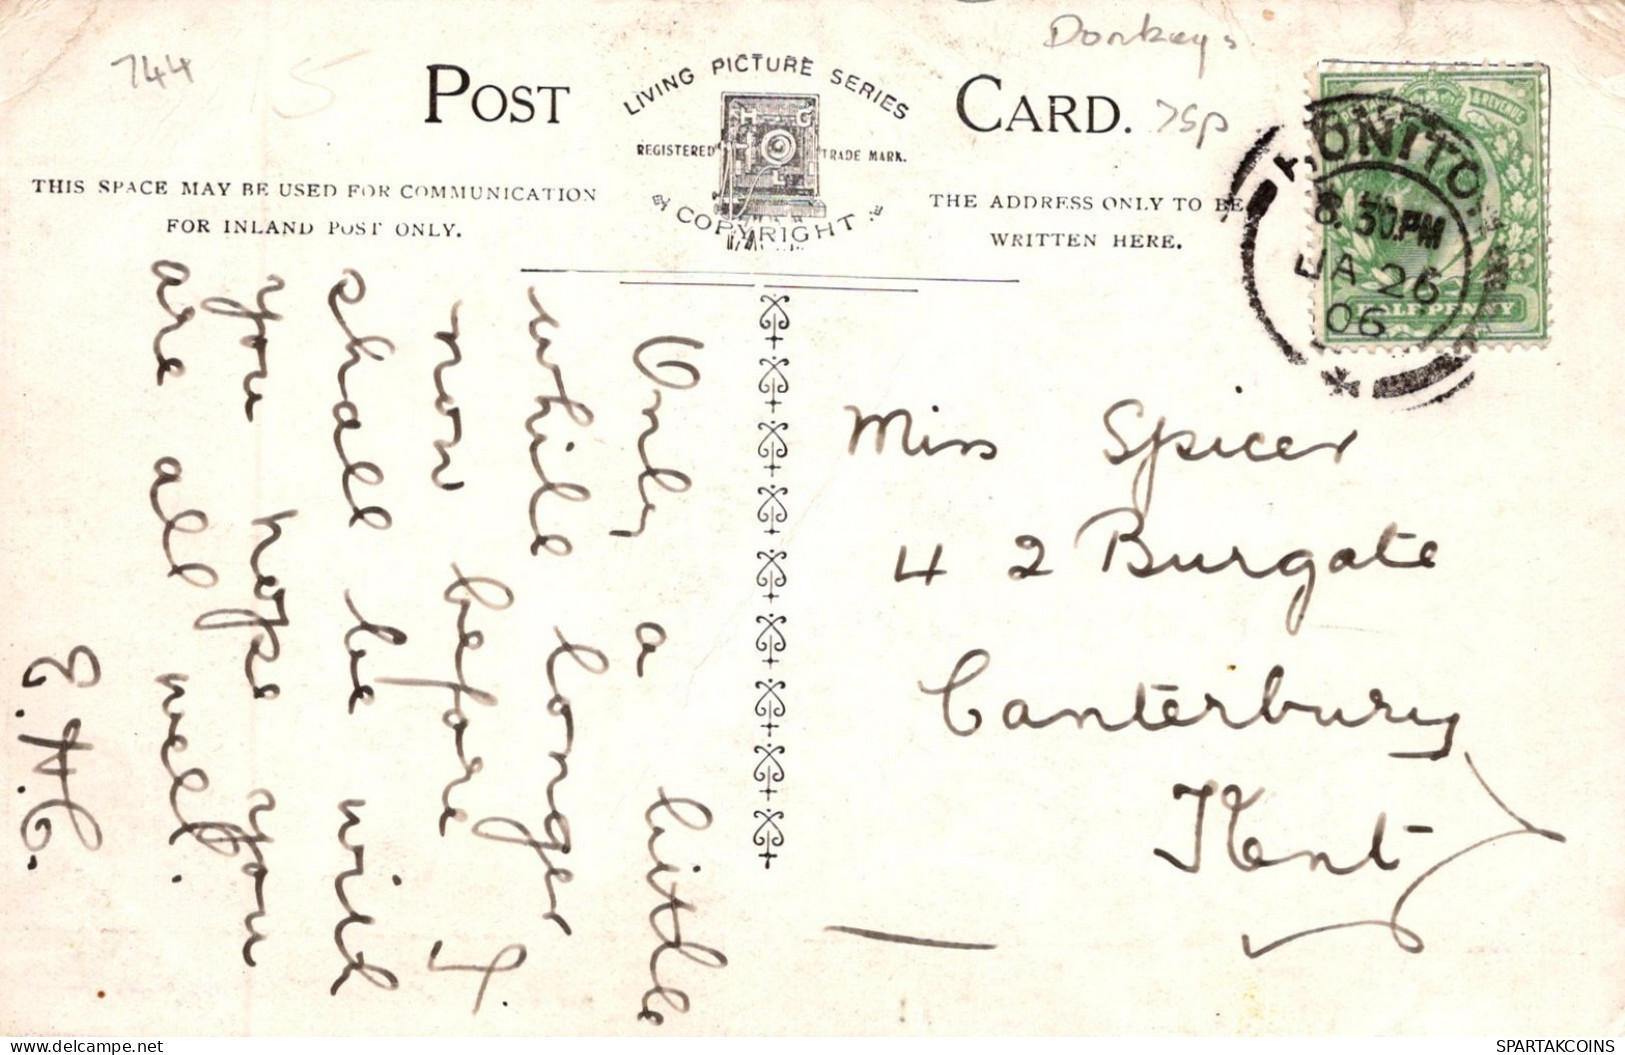 744
Donkeys
POST
LIVING PICTURE SERIES
H G
REGISTERED TRADE MARK.
COPYRIGHT
CARD.
75p
THIS SPACE MAY BE USED FOR COMMUNICATION
FOR INLAND POST ONLY.
THE ADDRESS ONLY TO BE
WRITTEN HERE.
& REVENUE
HALFPENNY
HONITON
8.30PM
JA 26
06
Only a little
while longer
now before I.
shall be with
you hope you
are all well.
E.H.C.
Miss Spicer
42 Burgate
Canterbury
Kent
SPARTAKCOINS
delcampe.net